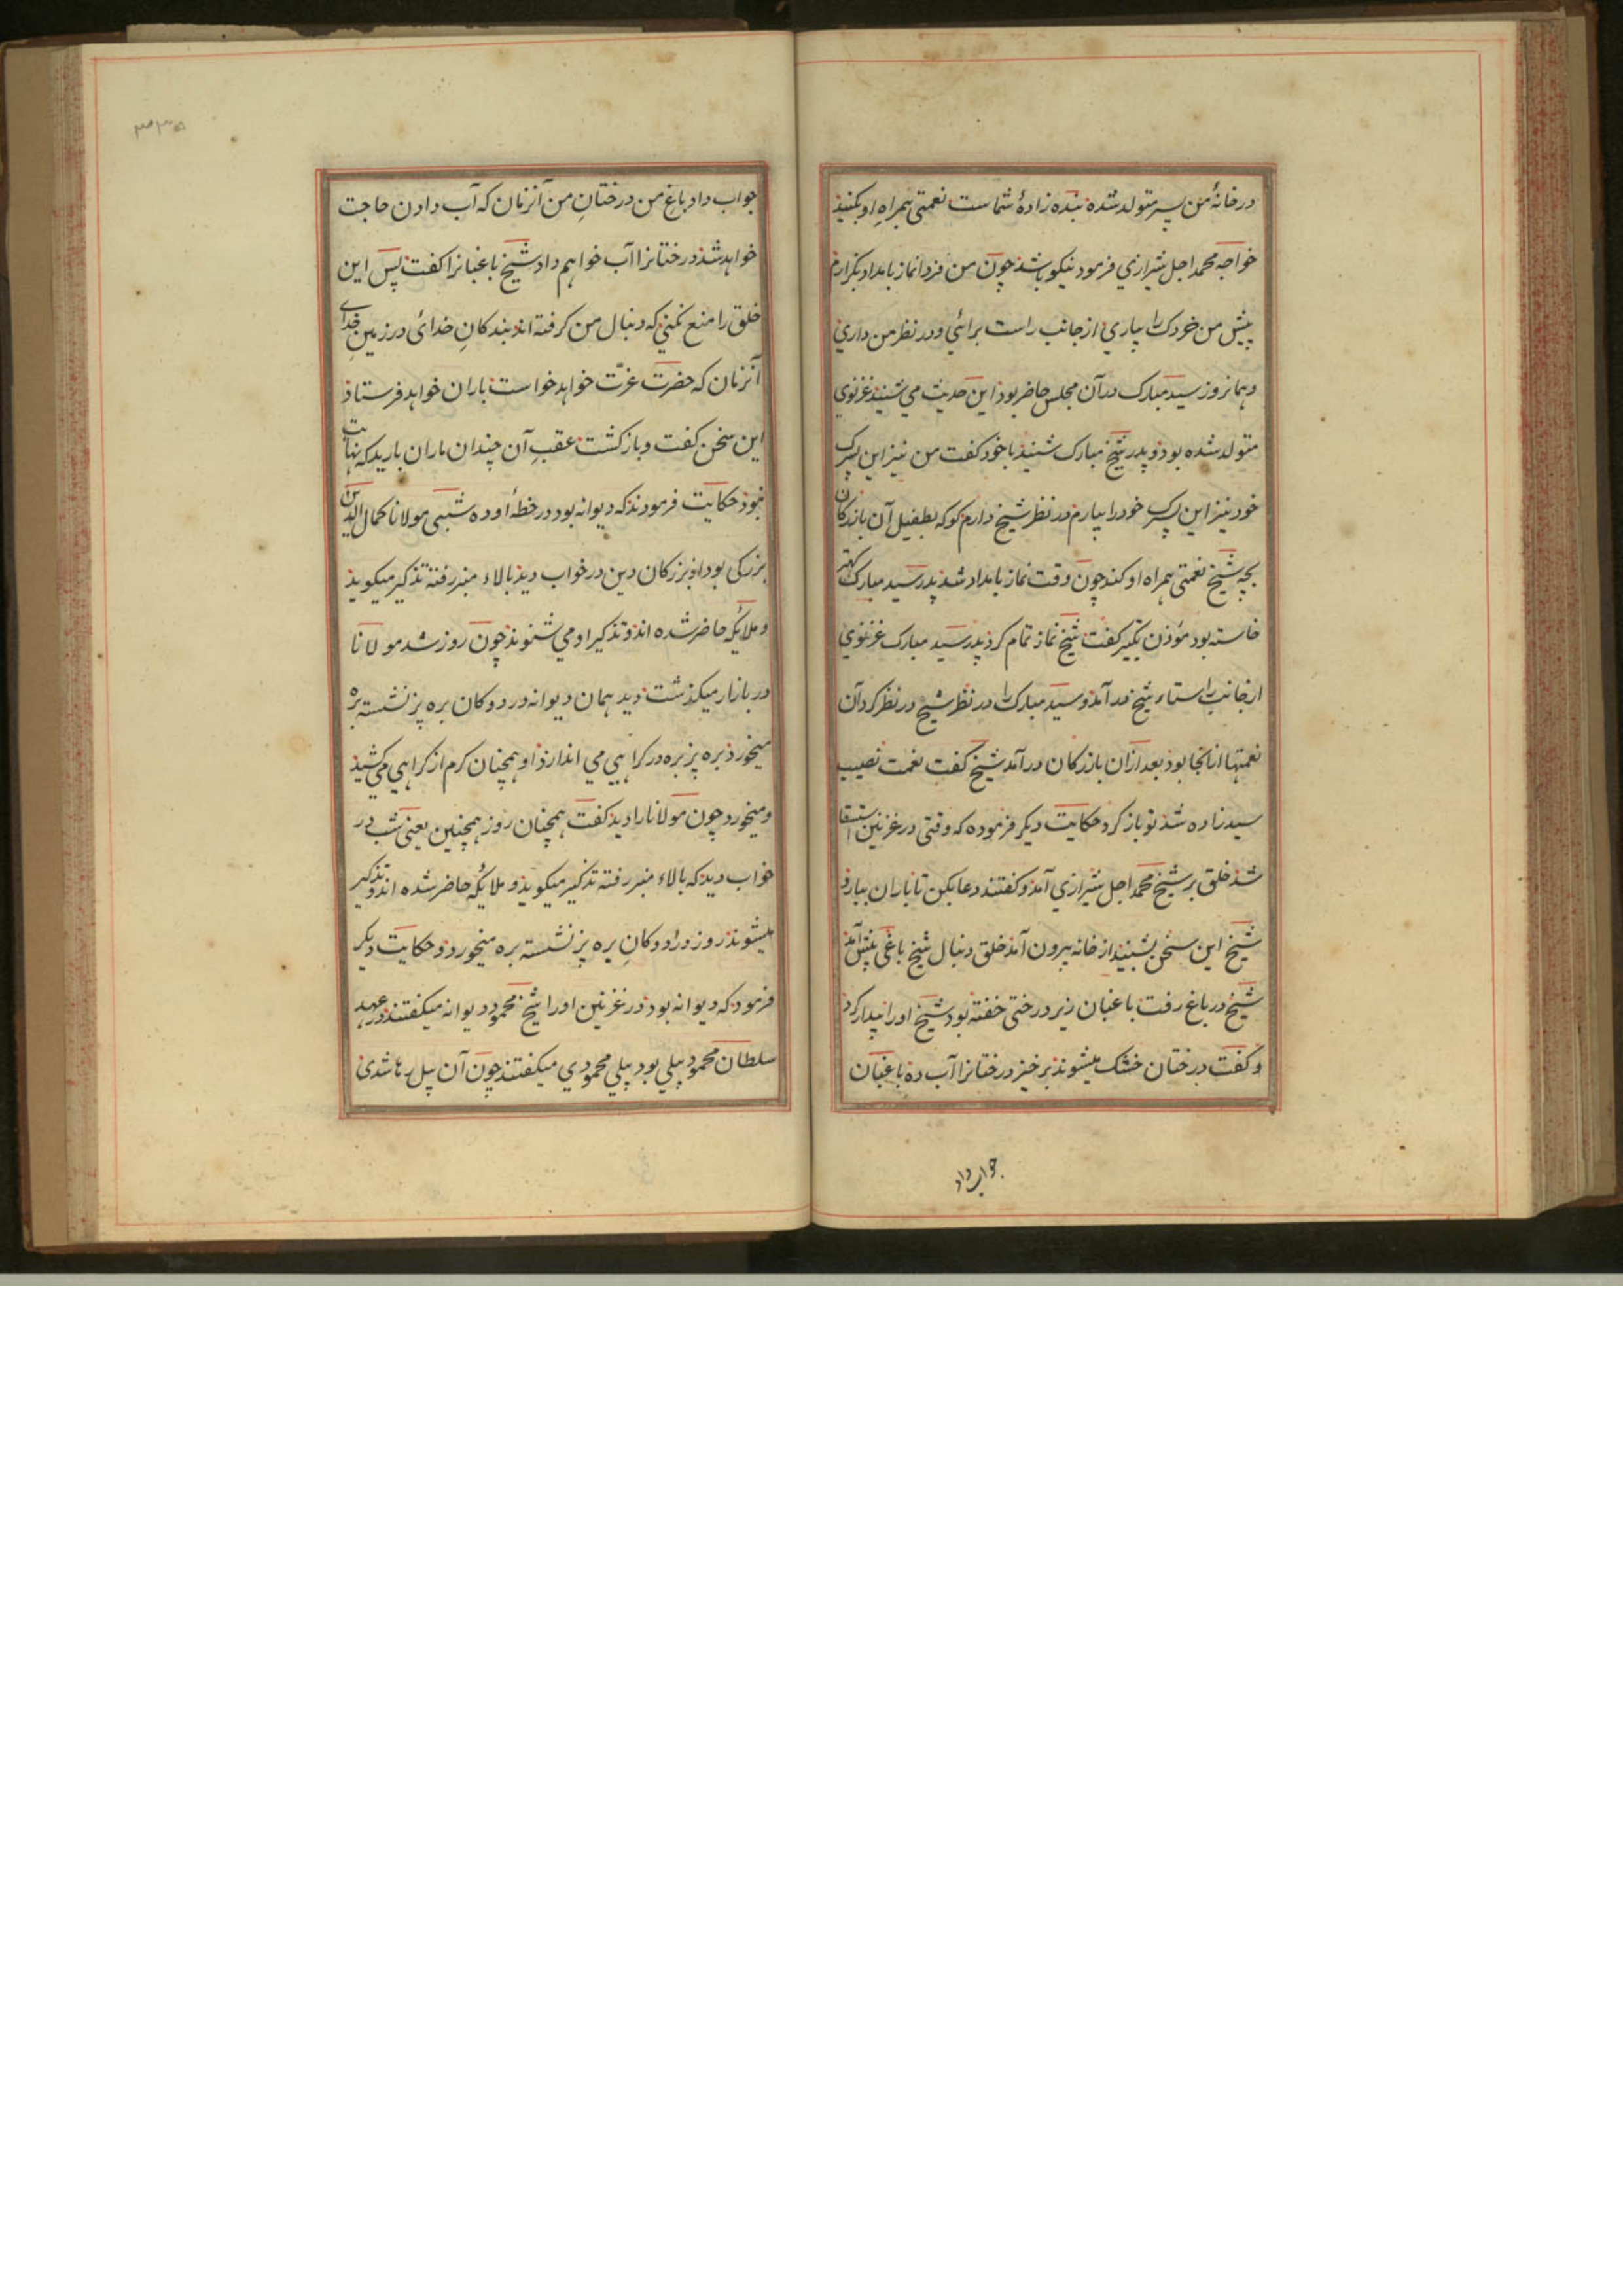 در خانهٔ من پسر متولد شده بنده زادهٔ شماست نعمتی همراهِ او بکنید
خواجه محمد اجل شیرازي فرمود نیکو باشد چون من فردا نماز بامداد بکزارم
پیش من خردک را بیاري از جانب راست برائي و در نظر من داري
و همانروز سید مبارک در آن مجلس حاضر بود این حدیث مي شنید غزنوي
متولد شده بود و پدر شیخ مبارک شنید با خود کفت من نیز این پسرک
خود نیز این پسرک خود را بیارم در نظر شیخ دارم کو که بطفیل آن بازرکان
بچه شیخ نعمتی همراه او کند چون وقت نماز بامداد شد پدر سید مبارک
خاسته بود مؤذن تکبیر کفت شیخ نماز تمام کرد پدر سید مبارک غزنوي
از جانب راستاء شیخ در آمد و سید مبارک را در نظر شیخ در نظر کرد آن
نعمتها از انجا بود بعد ازان بازرکان در آمد شیخ کفت نعمت نصیب
سید زاده شد تو باز کرد حکایت دیکر فرموده که وقتی در غزنین استسقا
شد خلق بر شیخ محمد اجل شیرازي آمد و کفتند دعا بکن تا باران ببارد
شیخ این سخن بشنید از خانه بیرون آمد خلق دنبال شیخ باغی پیش آمد
شیخ در باغ رفت باغبان زیر درختی خفته بود شیخ او را بیدار کرد
و کفت درختان خشک میشوند برخیز درختانرا آب ده باغبان
جواب داد
جواب داد باغ من درختانِ من آنزمان که آب دادن حاجت
خواهد شد درختانرا آب خواهم داد شیخ باغبانرا کفت پس این
خلق را منع نکني که دنبال من کرفته اند بندکانِ خدائ در زمینِ خدای
آنزمان که حضرت عزّت خواهد خواست باران خواهد فرستاد
این سخن کفت و باز کشت عقبِ آن چندان باران بارید که نهایت
نبود حکایت فرمودند که دیوانه بود در خطهٔ اوده شبی مولانا کمال الدین
بزرکی بود از بزرکان دین در خواب دید بالاء منبر رفته تذکیر میکوید
و ملایکه حاضر شده اند و تذکیر او مي شنوند چون روز شد مولانا
در بازار میکذشت دید همان دیوانه در دوکان بره پز نشسته بره
میخورد بره پز بره در کراهیي مي اندازد او همچنان کرم از کراهي مي کشید
و میخورد چون مولانا را دید کفت همچنان روز همچنین یعنی شب در
خواب دید که بالاء منبر رفته تذکیر میکوید و ملایکه حاضر شده اند و تذکیر
میشنوند روز در دوکانِ بره پز نشسته بره میخورد و حکایت دیکر
فرمود که دیوانه بود در غزنین او را شیخ محمود دیوانه میکفتند در عهد
سلطان محمود پیلي بود پیلي محمودي میکفتند چون آن پیل رها شدی